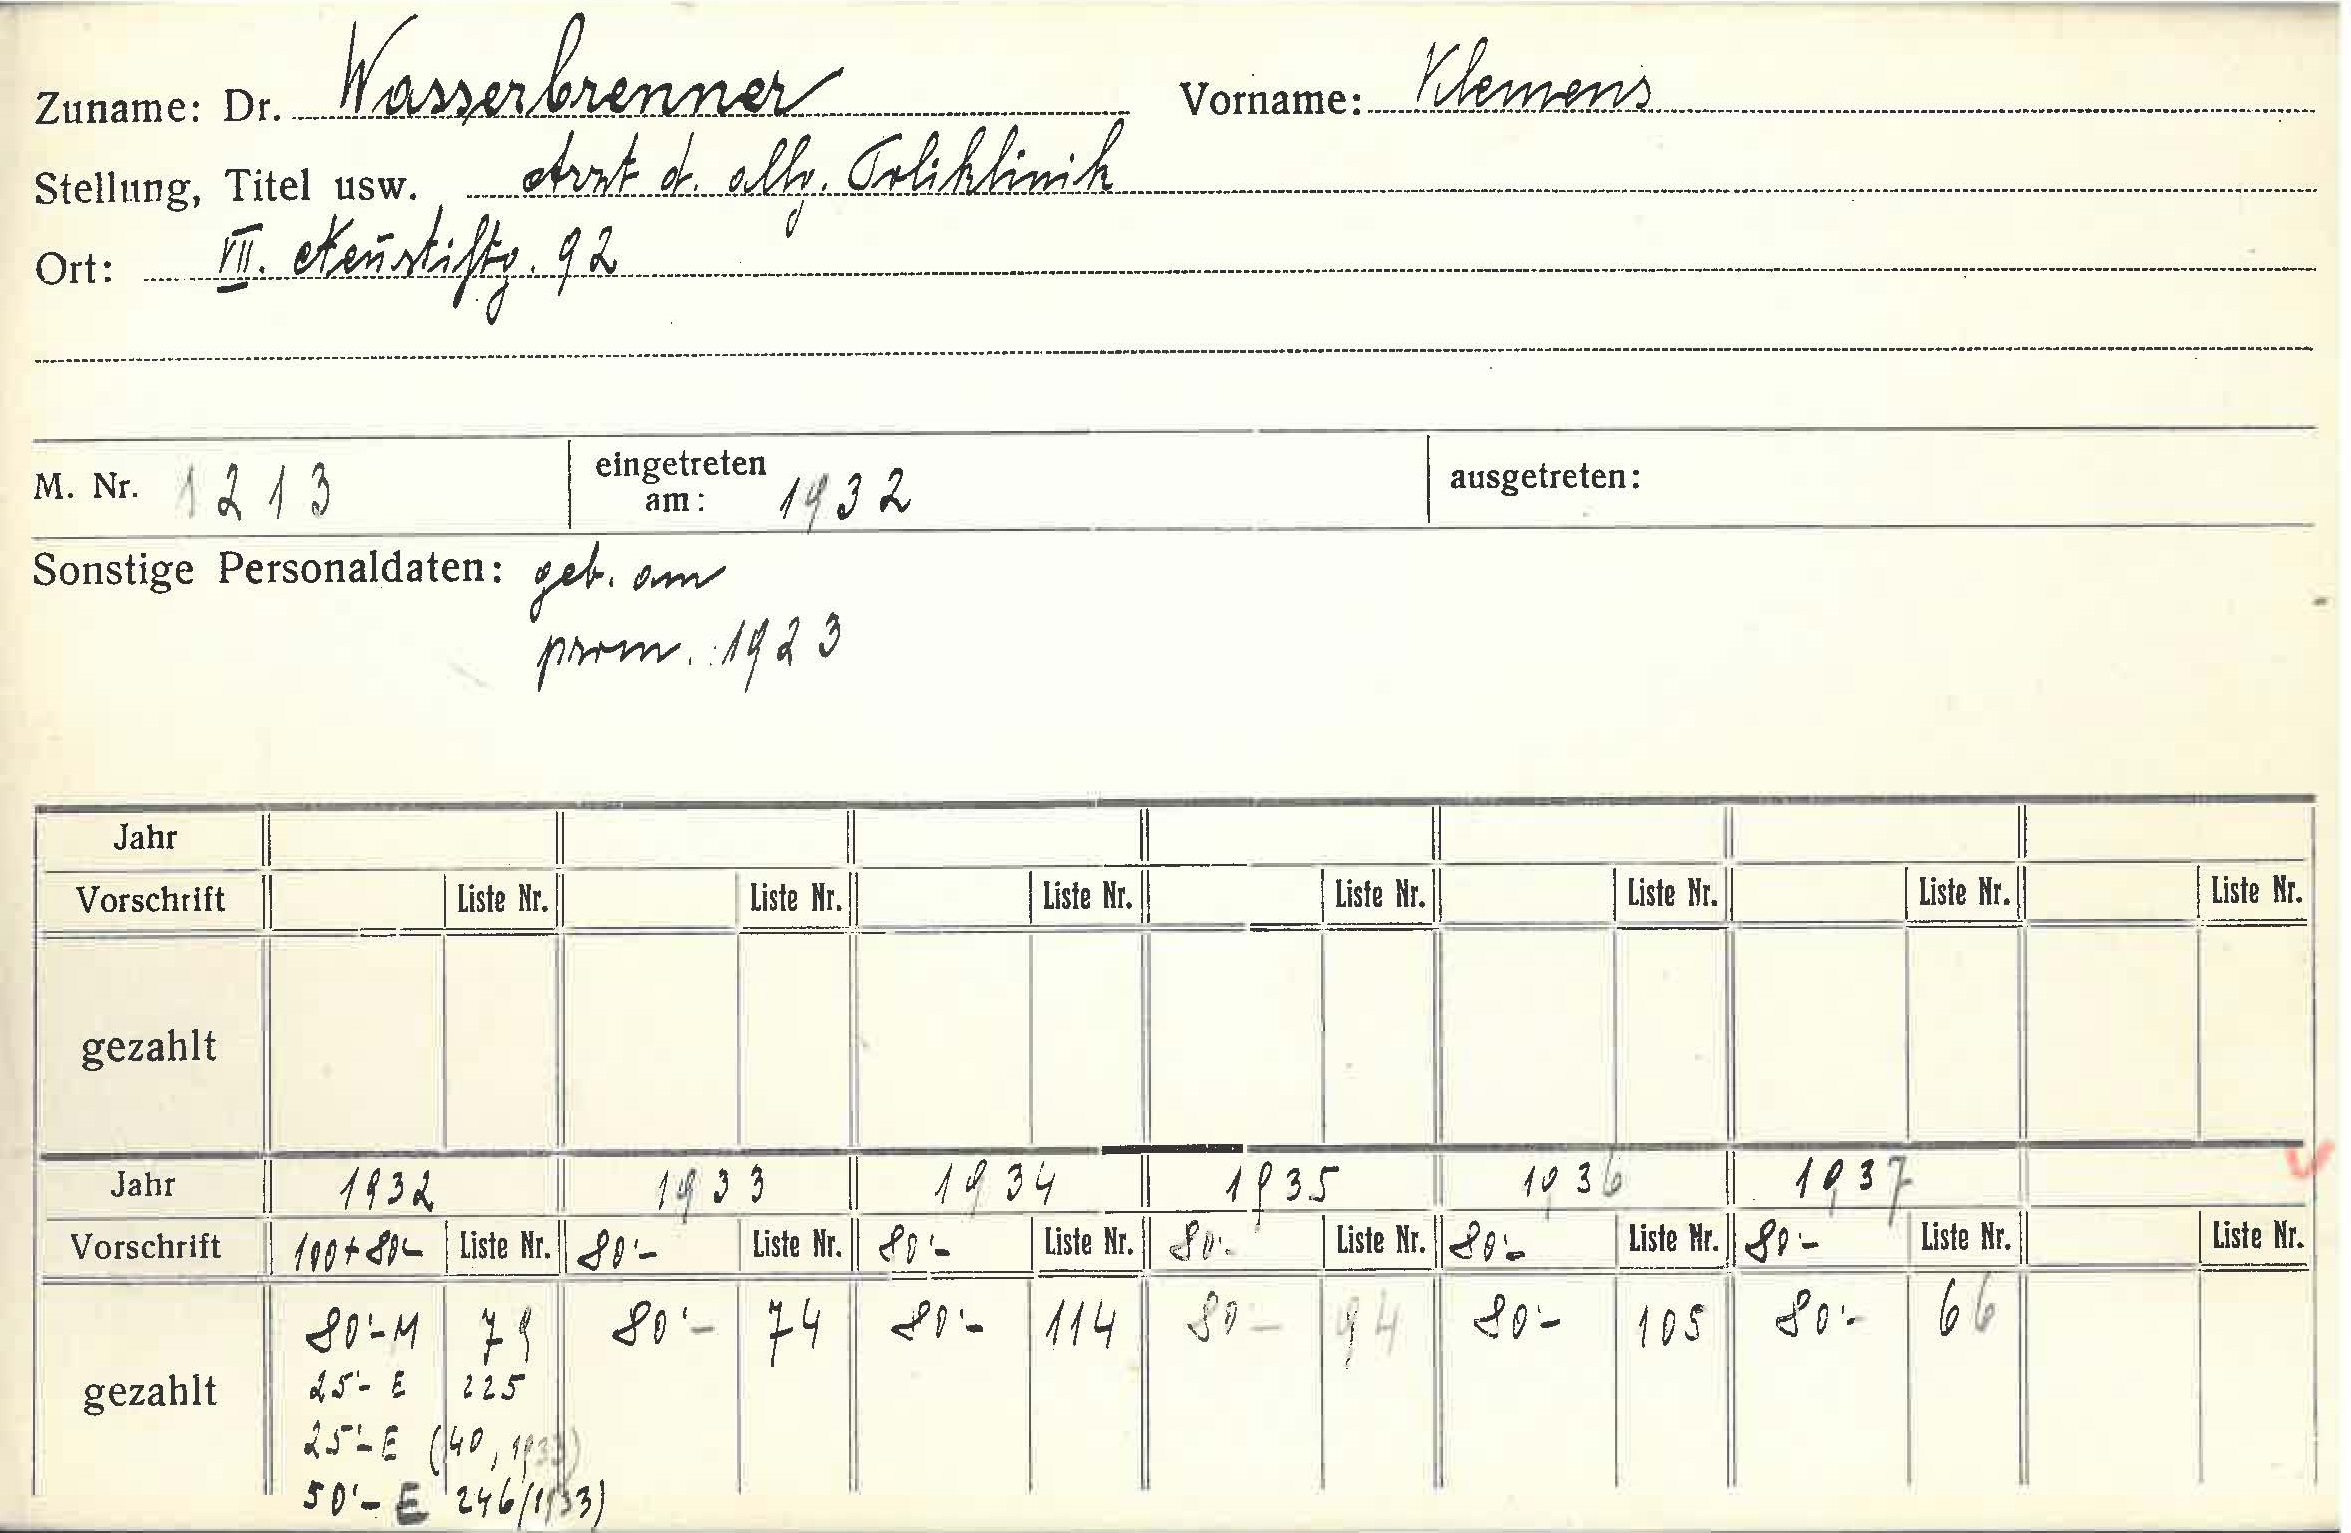 Zuname: Dr. Wasserbrenner Vorname: Klemens
Stellung, Titel usw. Arzt d. allg. Poliklinik
Ort: VII. Neustiftg. 92
M. Nr. 1213 eingetreten am: 1932 ausgetreten:
Sonstige Personaldaten: geb. am
prom. 1923
Jahr
Vorschrift Liste Nr. Liste Nr. Liste Nr. Liste Nr. Liste Nr. Liste Nr. Liste Nr.
gezahlt
Jahr 1932 1933 1934 1935 1936 1937
Vorschrift 100+80'- Liste Nr. 80'- Liste Nr. 80'- Liste Nr. 80'- Liste Nr. 80'- Liste Nr. 80'- Liste Nr. Liste Nr.
80'- M 79 80'- 74 80'- 114 80'- 94 80'- 105 80'- 66
gezahlt 25'- E 225
25'- E (40, 1933)
50'- E 246/1933)